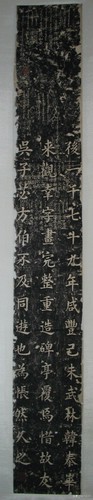 後一千七十九年咸豐己未武林韓泰華
來觀幸字畫完整重造碑亭覆焉惜故友
吳子苾方伯不及同遊也為悵然久之